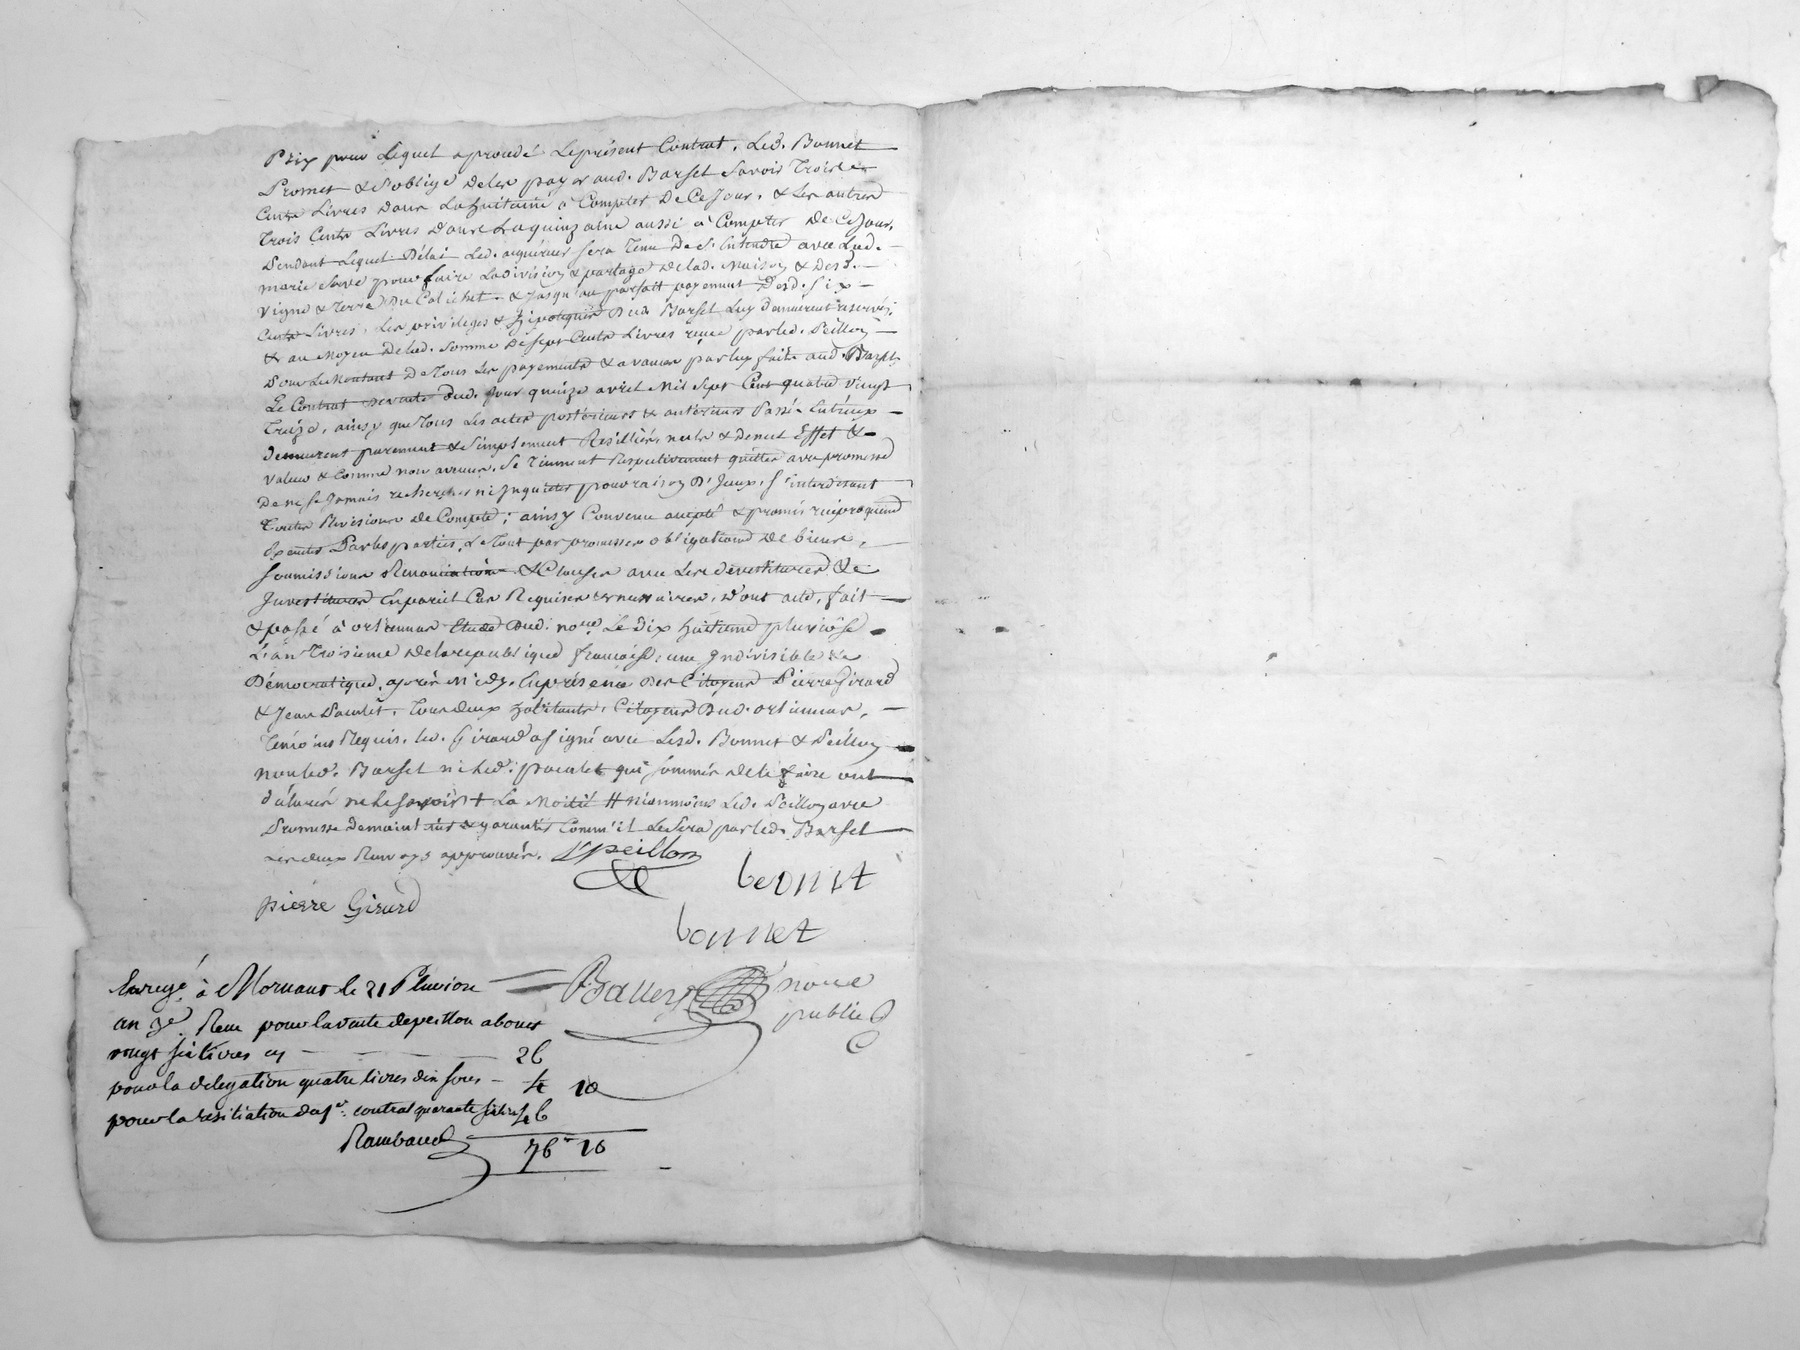 Prix pour lequel a procedé le présent Contrat, Led. Bonnet
Promet & S'oblige de les payer aud. Barset Savoir Trois
Cents Livres dans La huitaine à Compter De Ce Jour, & Les autres
Trois Cents Livres dans La quinzaine aussi à Compter De Ce Jour,
Pendant Lequel Délai Led. acquéreur sera Tenu De S'Entendre avec Lad.
marie pour faire La division & partage de lad. Maison & Desd.
Vigne & Terre Du & Jusqu'au parfait payement Desd. Six
Cents Livres, Les privileges & hipoteques Dud. Barset Luy demeurent reservés,
& au Moyen de lad. Somme De sept Cents Livres reçue par led. Peillon
Pour Le Montant De Tous Les payements & avances par luy faits aud. Barset
Le Contrat de vente dud. Jour quinze avril Mil Sept Cent quatre vingt
Treize, ainsy que Tous Les actes postérieurs & antérieurs Passé Entreux
demeurent purement & Simplement Resilliés, nuls & de nul Effet &
Valeur & Comme non avenus, Se Tiennent Respectivement quittes avec promesse
De ne se Jamais rechercher ni Inquieter pour raison D'Iceux, S'interdisant
Toutes Revisions de Compte; ainsy Convenu accepté & promis reciproquement
Par les parties, Le Tout par promesses obligations de biens,
Soumissions Renonciation & Clauses avec Les devestitures &
Investitures En pareil Cas Requises & necessaires, Dont acte, fait
& passé à ortiennas Etude Dud. nore. Le Dix huitieme pluviôse
L'an Troisieme de la republique française, une Indivisible &
Démocratique, après Midy, En présence Des Citoyens Pierre Girard
& Jean Paulet, Tous deux habitants, Citoyens Dud. ortiennas,
Témoins Requis, led. Girard a signé avec Lesd. Bonnet & Peillon
non led. Barset ni led. paulet qui sommés de le faire ont
déclaré ne le sçavoir + La Moitié # néanmoins Led. Peillon avec
Promesse de maintenir & garantir Comm'il Le Sera par led. Barset
Les deux Renvoys approuvés. Peillon
bonnet
pierre Girard
bonnet
Enregé. à Mornant le 21 Pluviose
Balley nore
public
an 3e. Recu pour la vente de peillon a bonet
vingt six livres cy 26
pour la delegation quatre livres dix sous 4 10
pour la resiliation du 1er. contrat quarante six livres 46
Rambaud 76 10